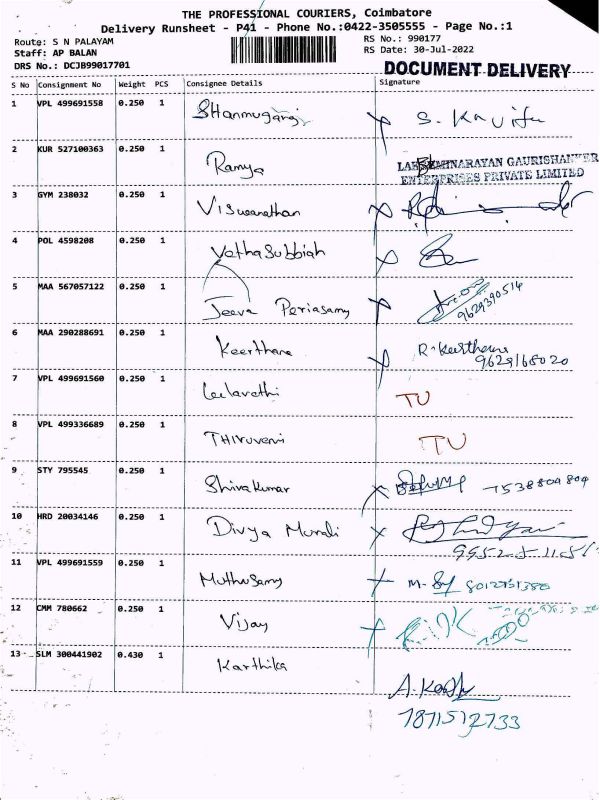 THE PROFESSIONAL COURIERS, Coimbatore
Delivery Runsheet - P41 - Phone No.:0422-3505555 - Page No.:1
Route: S N PALAYAM RS No.: 990177
Staff: AP BALAN RS Date: 30-Jul-2022
DRS No.: DCJB99017701 DOCUMENT DELIVERY
S No Consignment No Weight PCS Consignee Details Signature
1 VPL 499691558 0.250 1 S. Kavitha
2 KUR 527100363 0.250 1 Ramya
GAURISHANKER
ENTERPRISES PRIVATE LIMITED
3 GYM 238032 0.250 1 Viswanathan
4 POL 4598208 0.250 1 VethaSubbiah
5 MAA 567057122 0.250 1 Jeeva Periasamy
9629390514
6 MAA 290288691 0.250 1 Keerthana R. Keerthana
9629168020
7 VPL 499691560 0.250 1 Leelavathi TU
8 VPL 499336689 0.250 1 TU
9 STY 795545 0.250 1 Shivakumar 7538804804
10 HRD 20034146 0.250 1 Divya Murali
11 VPL 499691559 0.250 1 Muthusamy
12 CMM 780662 0.250 1 Vijay
13 SLM 300441902 0.430 1 Karthika